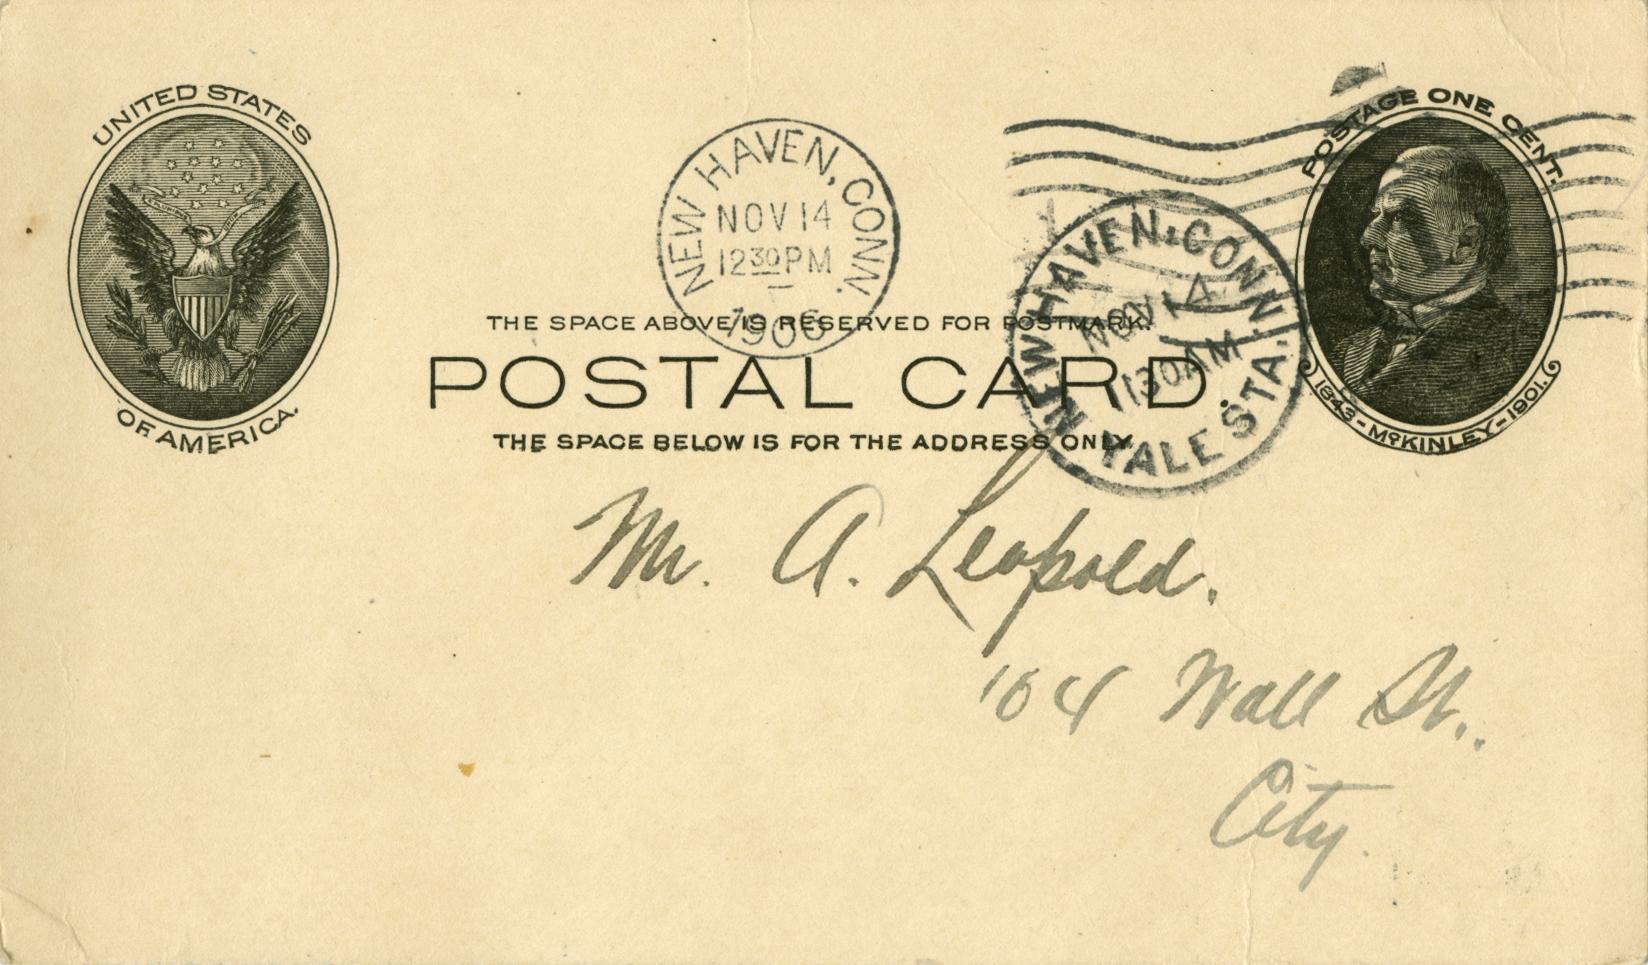 UNITED STATES
OF AMERICA.
NEW HAVEN, CONN.
NOV 14
12 30 PM
1906
POSTAGE ONE CENT.
1843-McKINLEY-1901.
THE SPACE ABOVE IS RESERVED FOR POSTMARK.
POSTAL CARD.
THE SPACE BELOW IS FOR THE ADDRESS ONLY.
NEW HAVEN, CONN.
NOV 14
1130AM
YALE STA.
Mr. A. Leopold.
104 Wall St..
City.